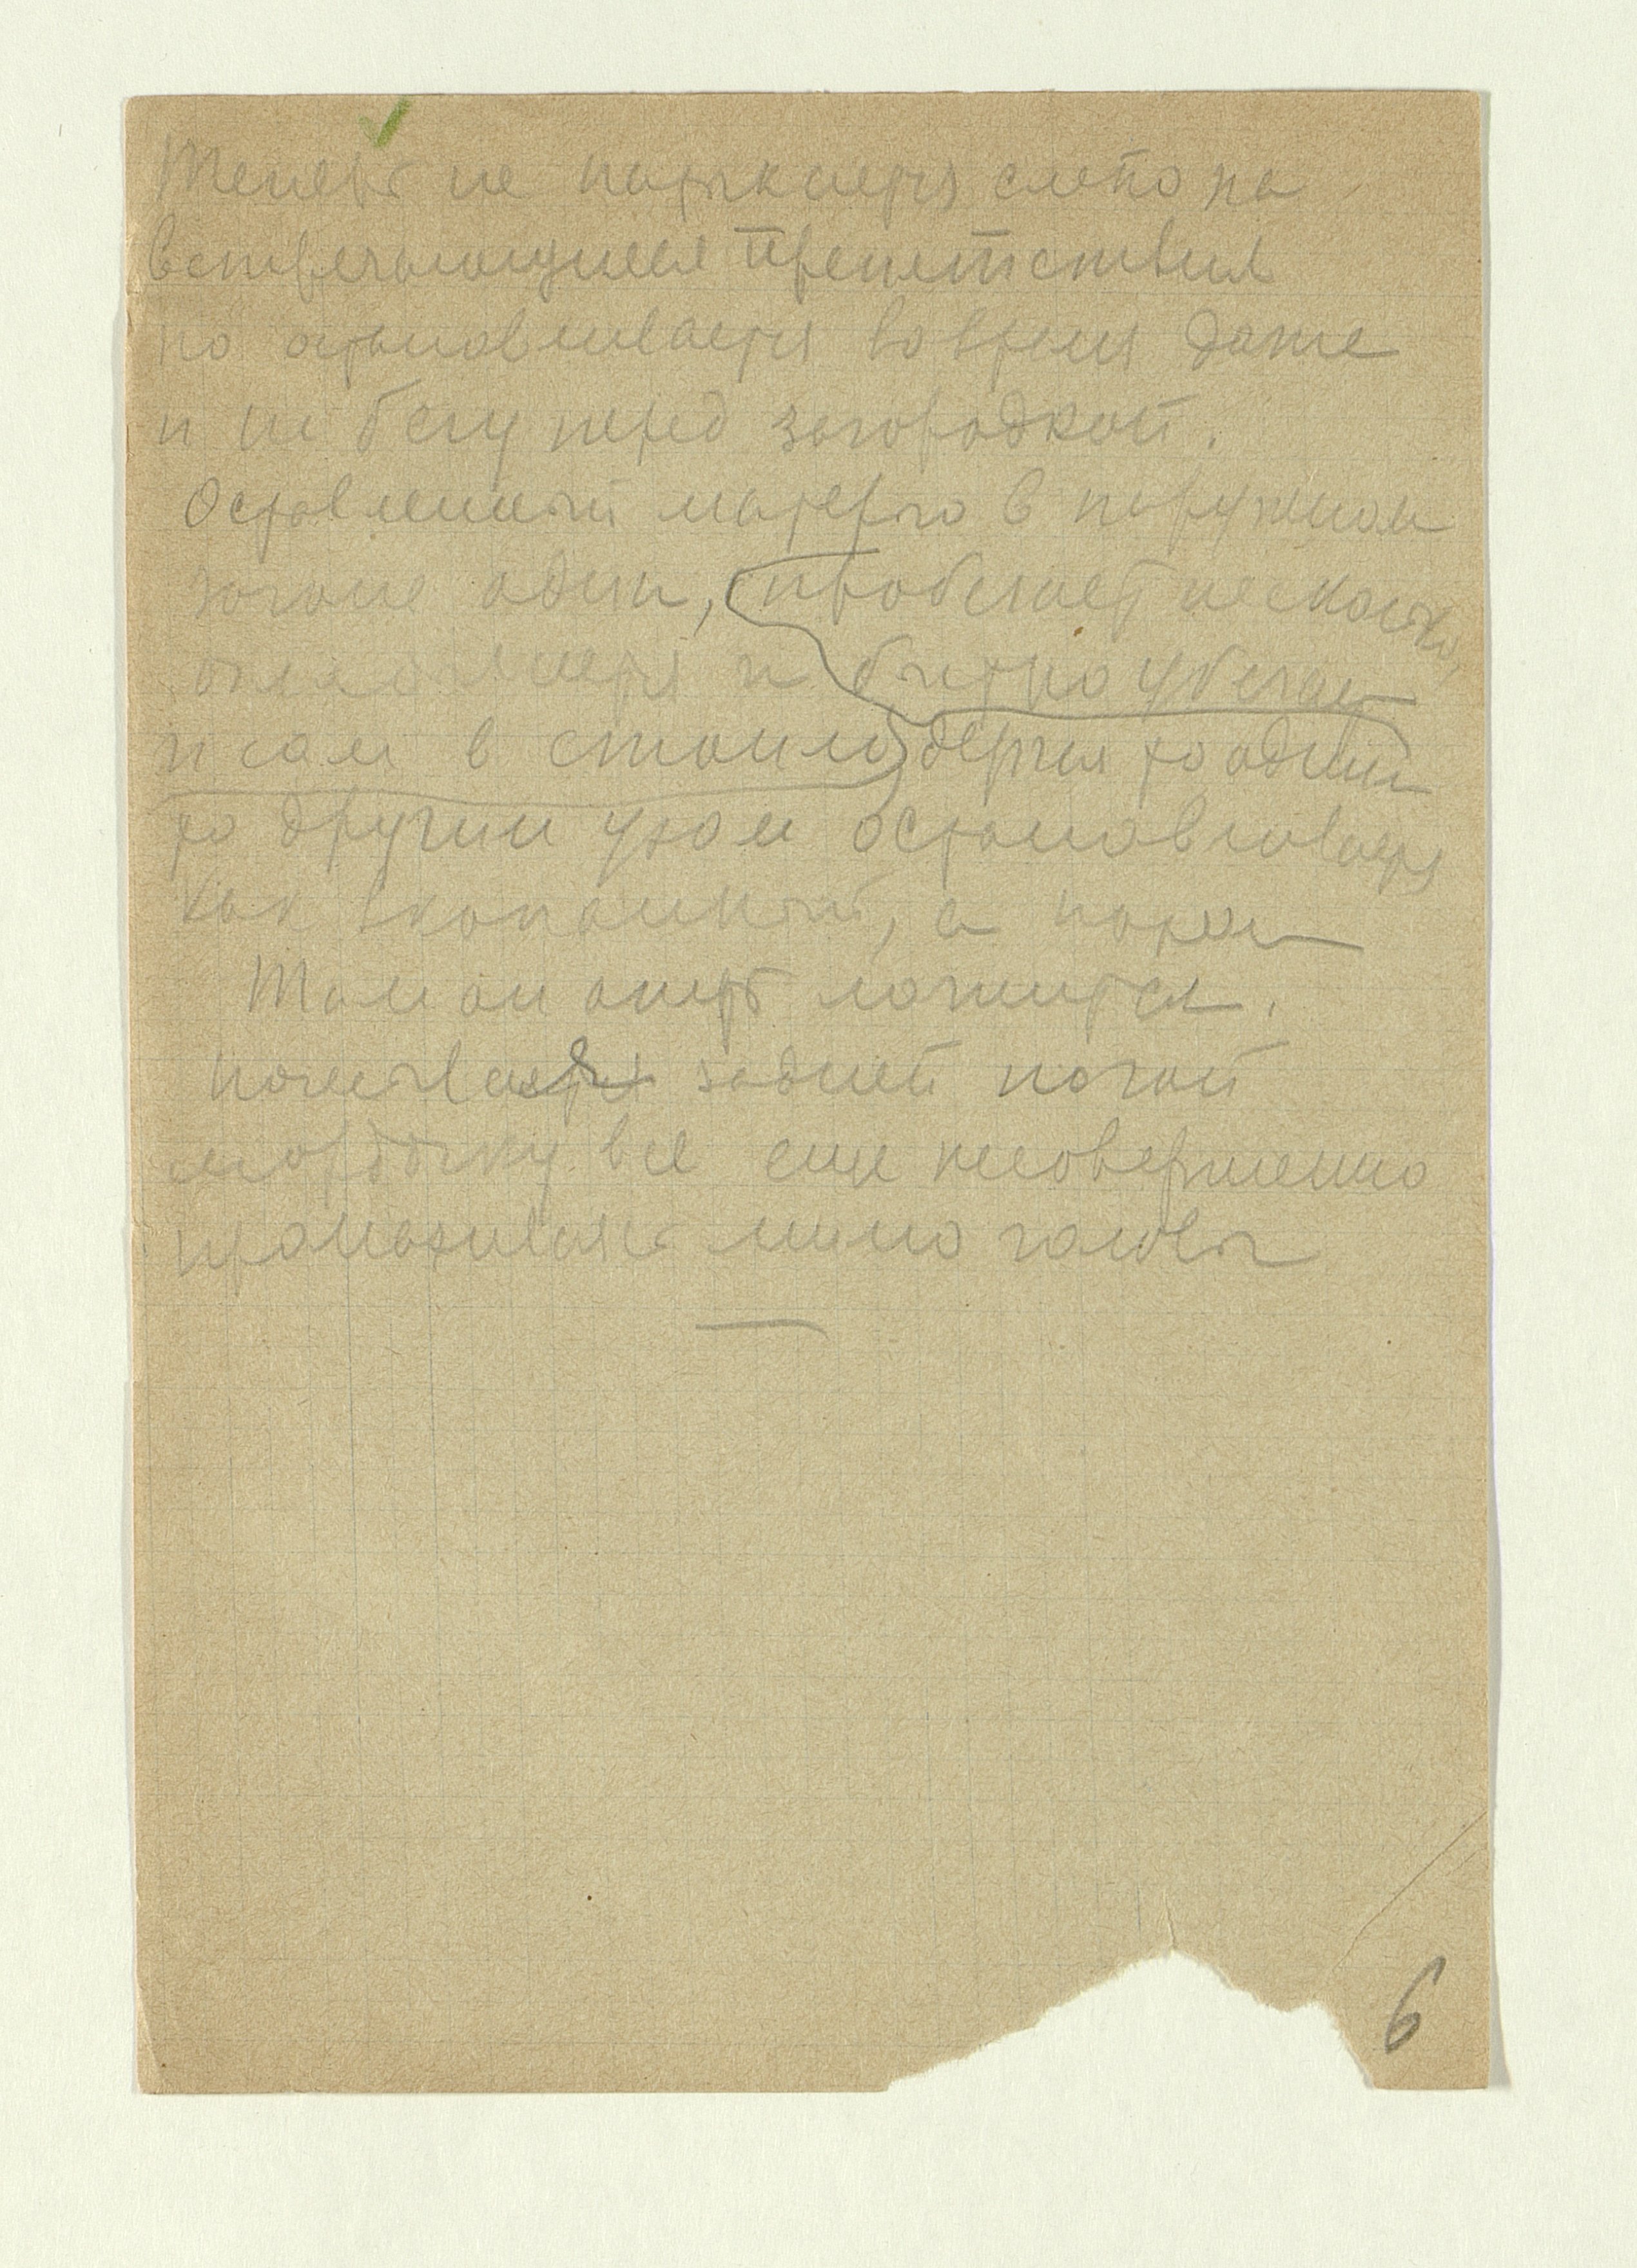 Теперь не натыкается слепо на
встречающиеся препятствия
но останавливается во время даже
и на бегу перед загородкой.
Оставленный матерью в наружном
загоне один, пробегает несколько,
оглядывается и быстро убегает
и сам в стойло дергая то одним
то другим ухом останавливается
как вкопанный, а потом
Там он опять ложится.
Почесывает задней ногой
мордочку все еще несовершенно
промахиваясь мимо головы
6